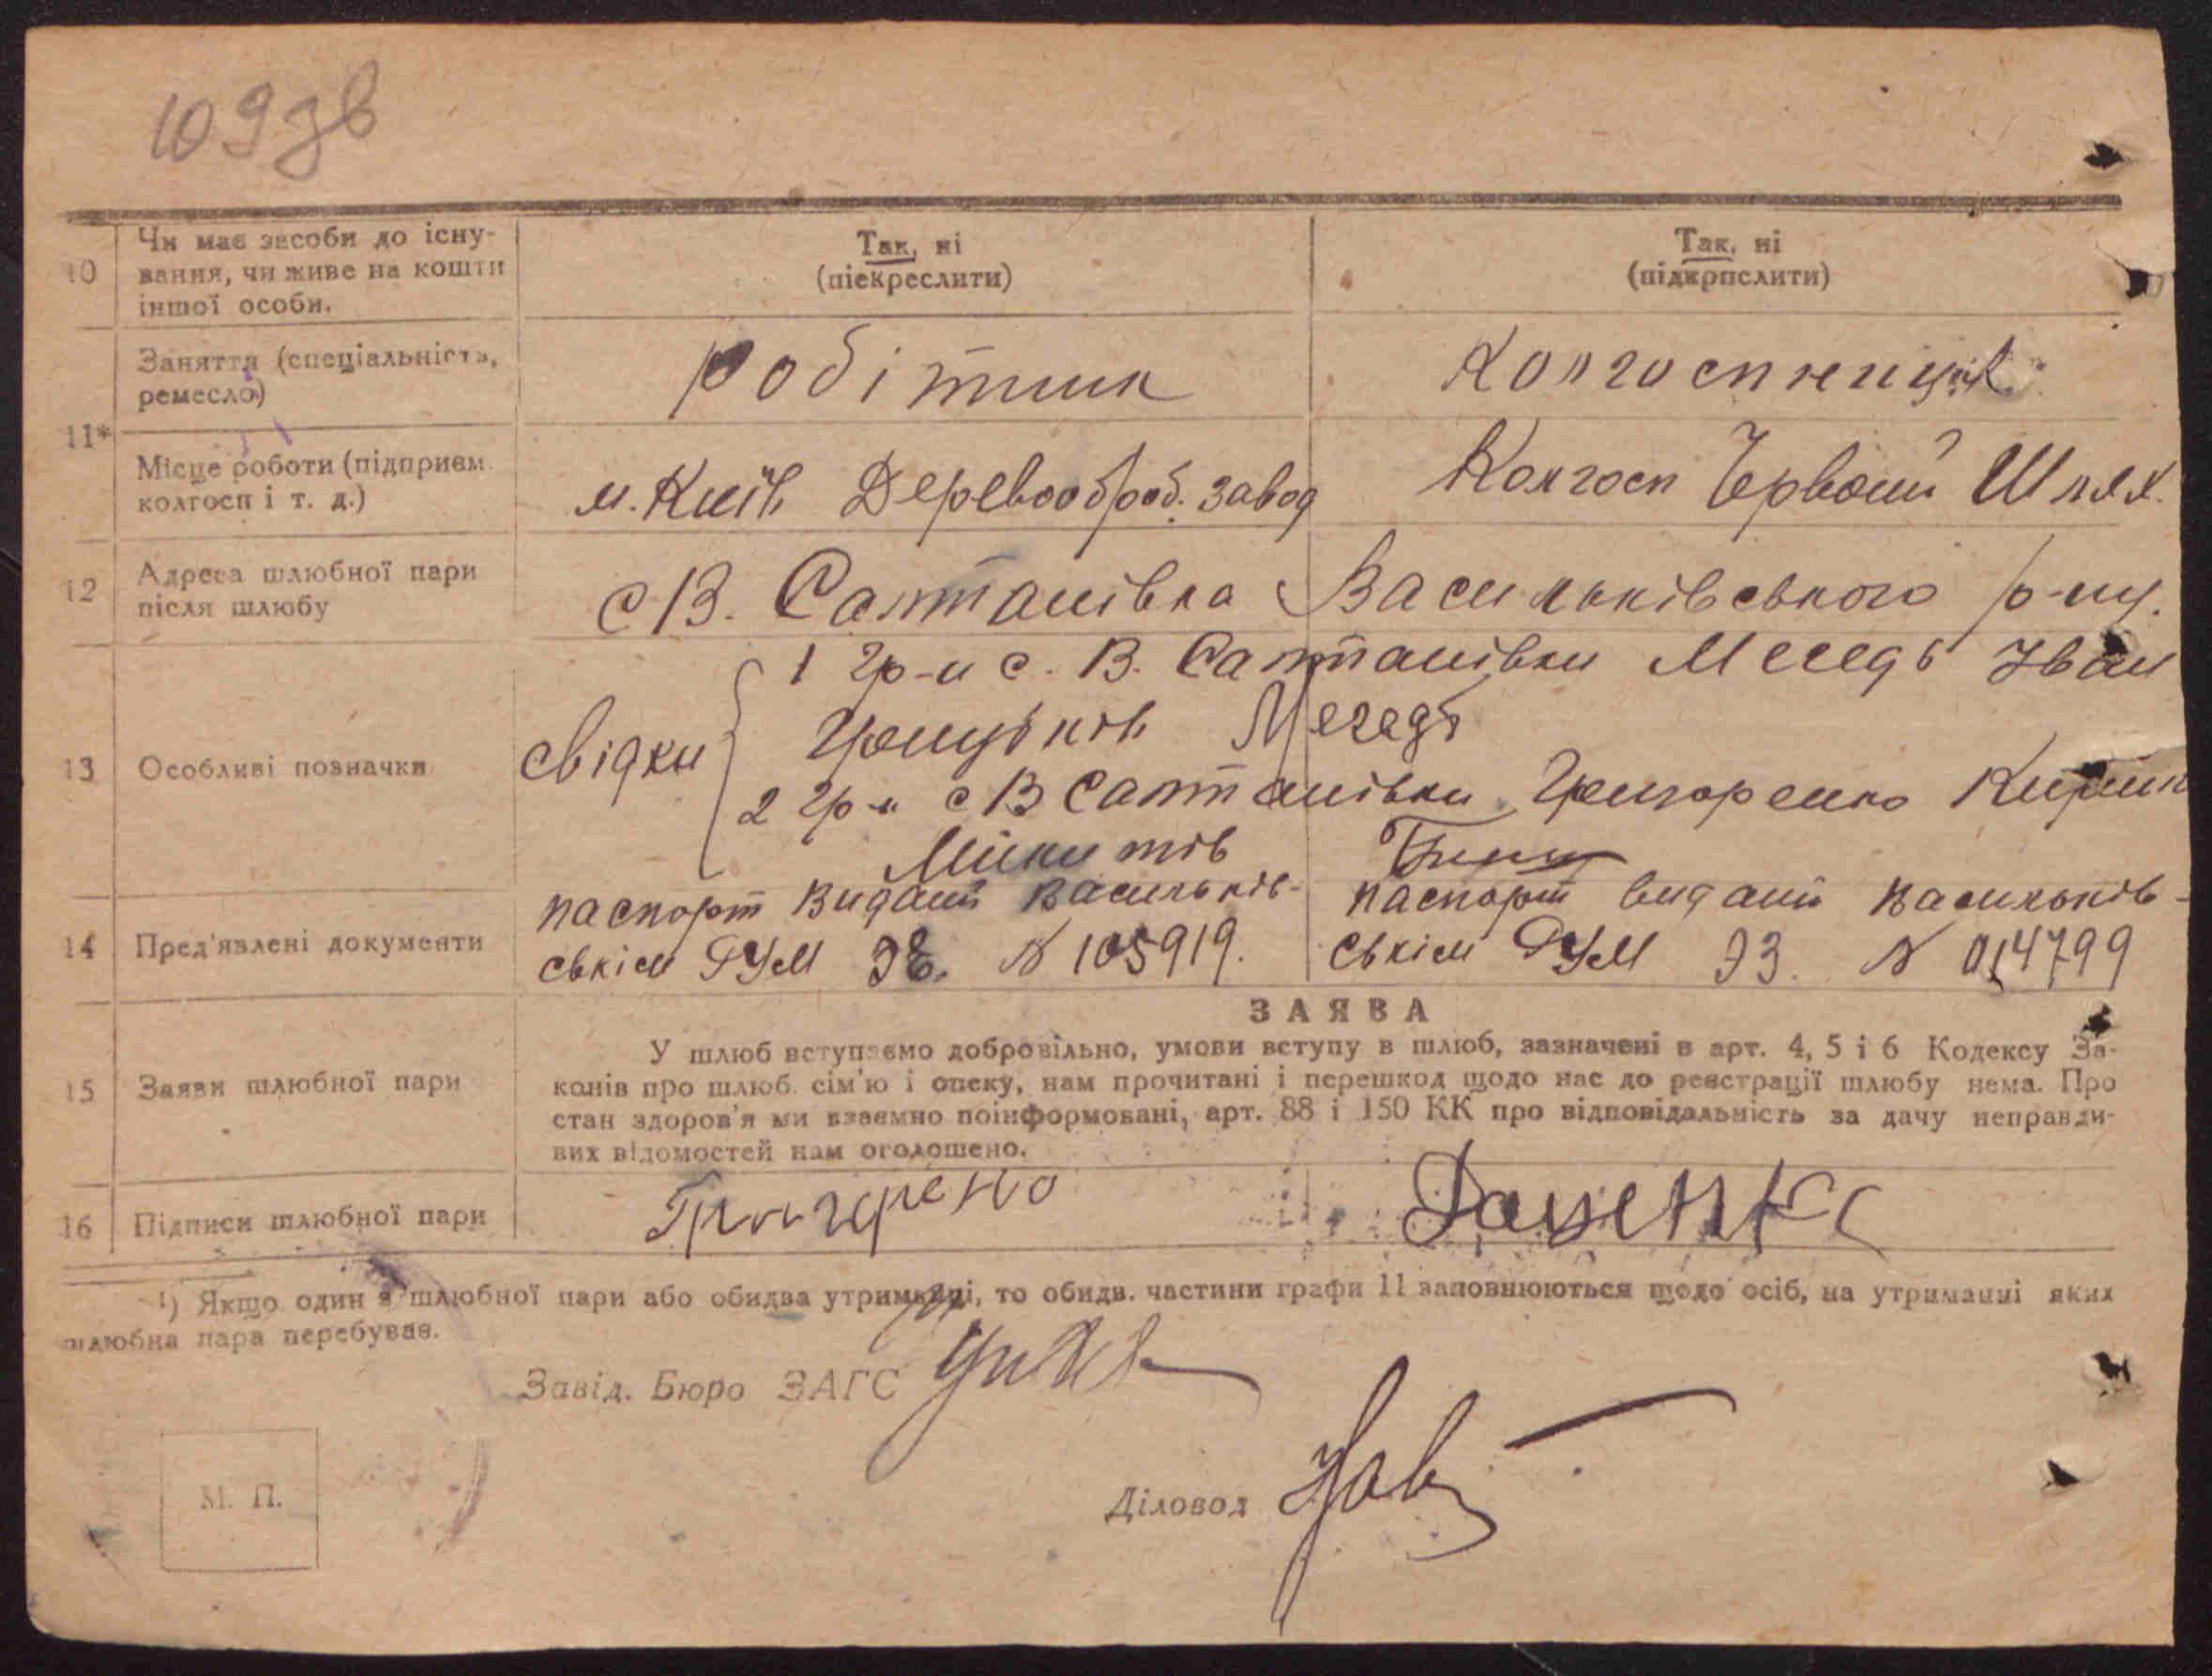 109зв
10 Чи має засоби до існу-
вання, чи живе на кошти
іншої особи.
Так, ні
(піекреслити)
Так, ні
(підкрпслити)
11* Заняття (спеціальність,
ремесло)
Робітник
Колгоспниця
Місце роботи (підприєм.
колгосп і т. д.)
м. Київ Деревооброб. завод
Колгосп Червоний Шлях.
12 Адреса шлюбної пари
після шлюбу
с В. Салтанівка Васильківського р-ну.
13 Особливі позначки
свідки
1 гр-н с. В. Салтанівки Мегедь Іван
Грицьків Мегедь
2 гр-н с В Салтанівки Григоренко Кирил
Микитів
14 Пред'явлені документи
паспорт виданий Васильків-
ськім РУМ ЭЕ. N 105919.
паспорт виданий Васильків-
ськім РУМ ЭЗ. N 014799
ЗАЯВА
15 Заяви шлюбної пари
У шлюб вступаємо добровільно, умови вступу в шлюб, зазначені в арт. 4, 5 і 6 Кодексу За-
конів про шлюб. сім'ю і опеку, нам прочитані і перешкод щодо нас до реєстрації шлюбу нема. Про
стан здоров'я ми взаємно поінформовані, арт. 88 і 150 КК про відповідальність за дачу неправди-
вих відомостей нам оголошено.
16 Підписи шлюбної пари
Григорено
Даценко
¹) Якщо один з шлюбної пари або обидва утриманці, то обидв. частини графи 11 заповнюються щодо осіб, на утриманні яких
шлюбна пара перебуває.
Завід. Бюро ЗАГС
М. П.
Діловод